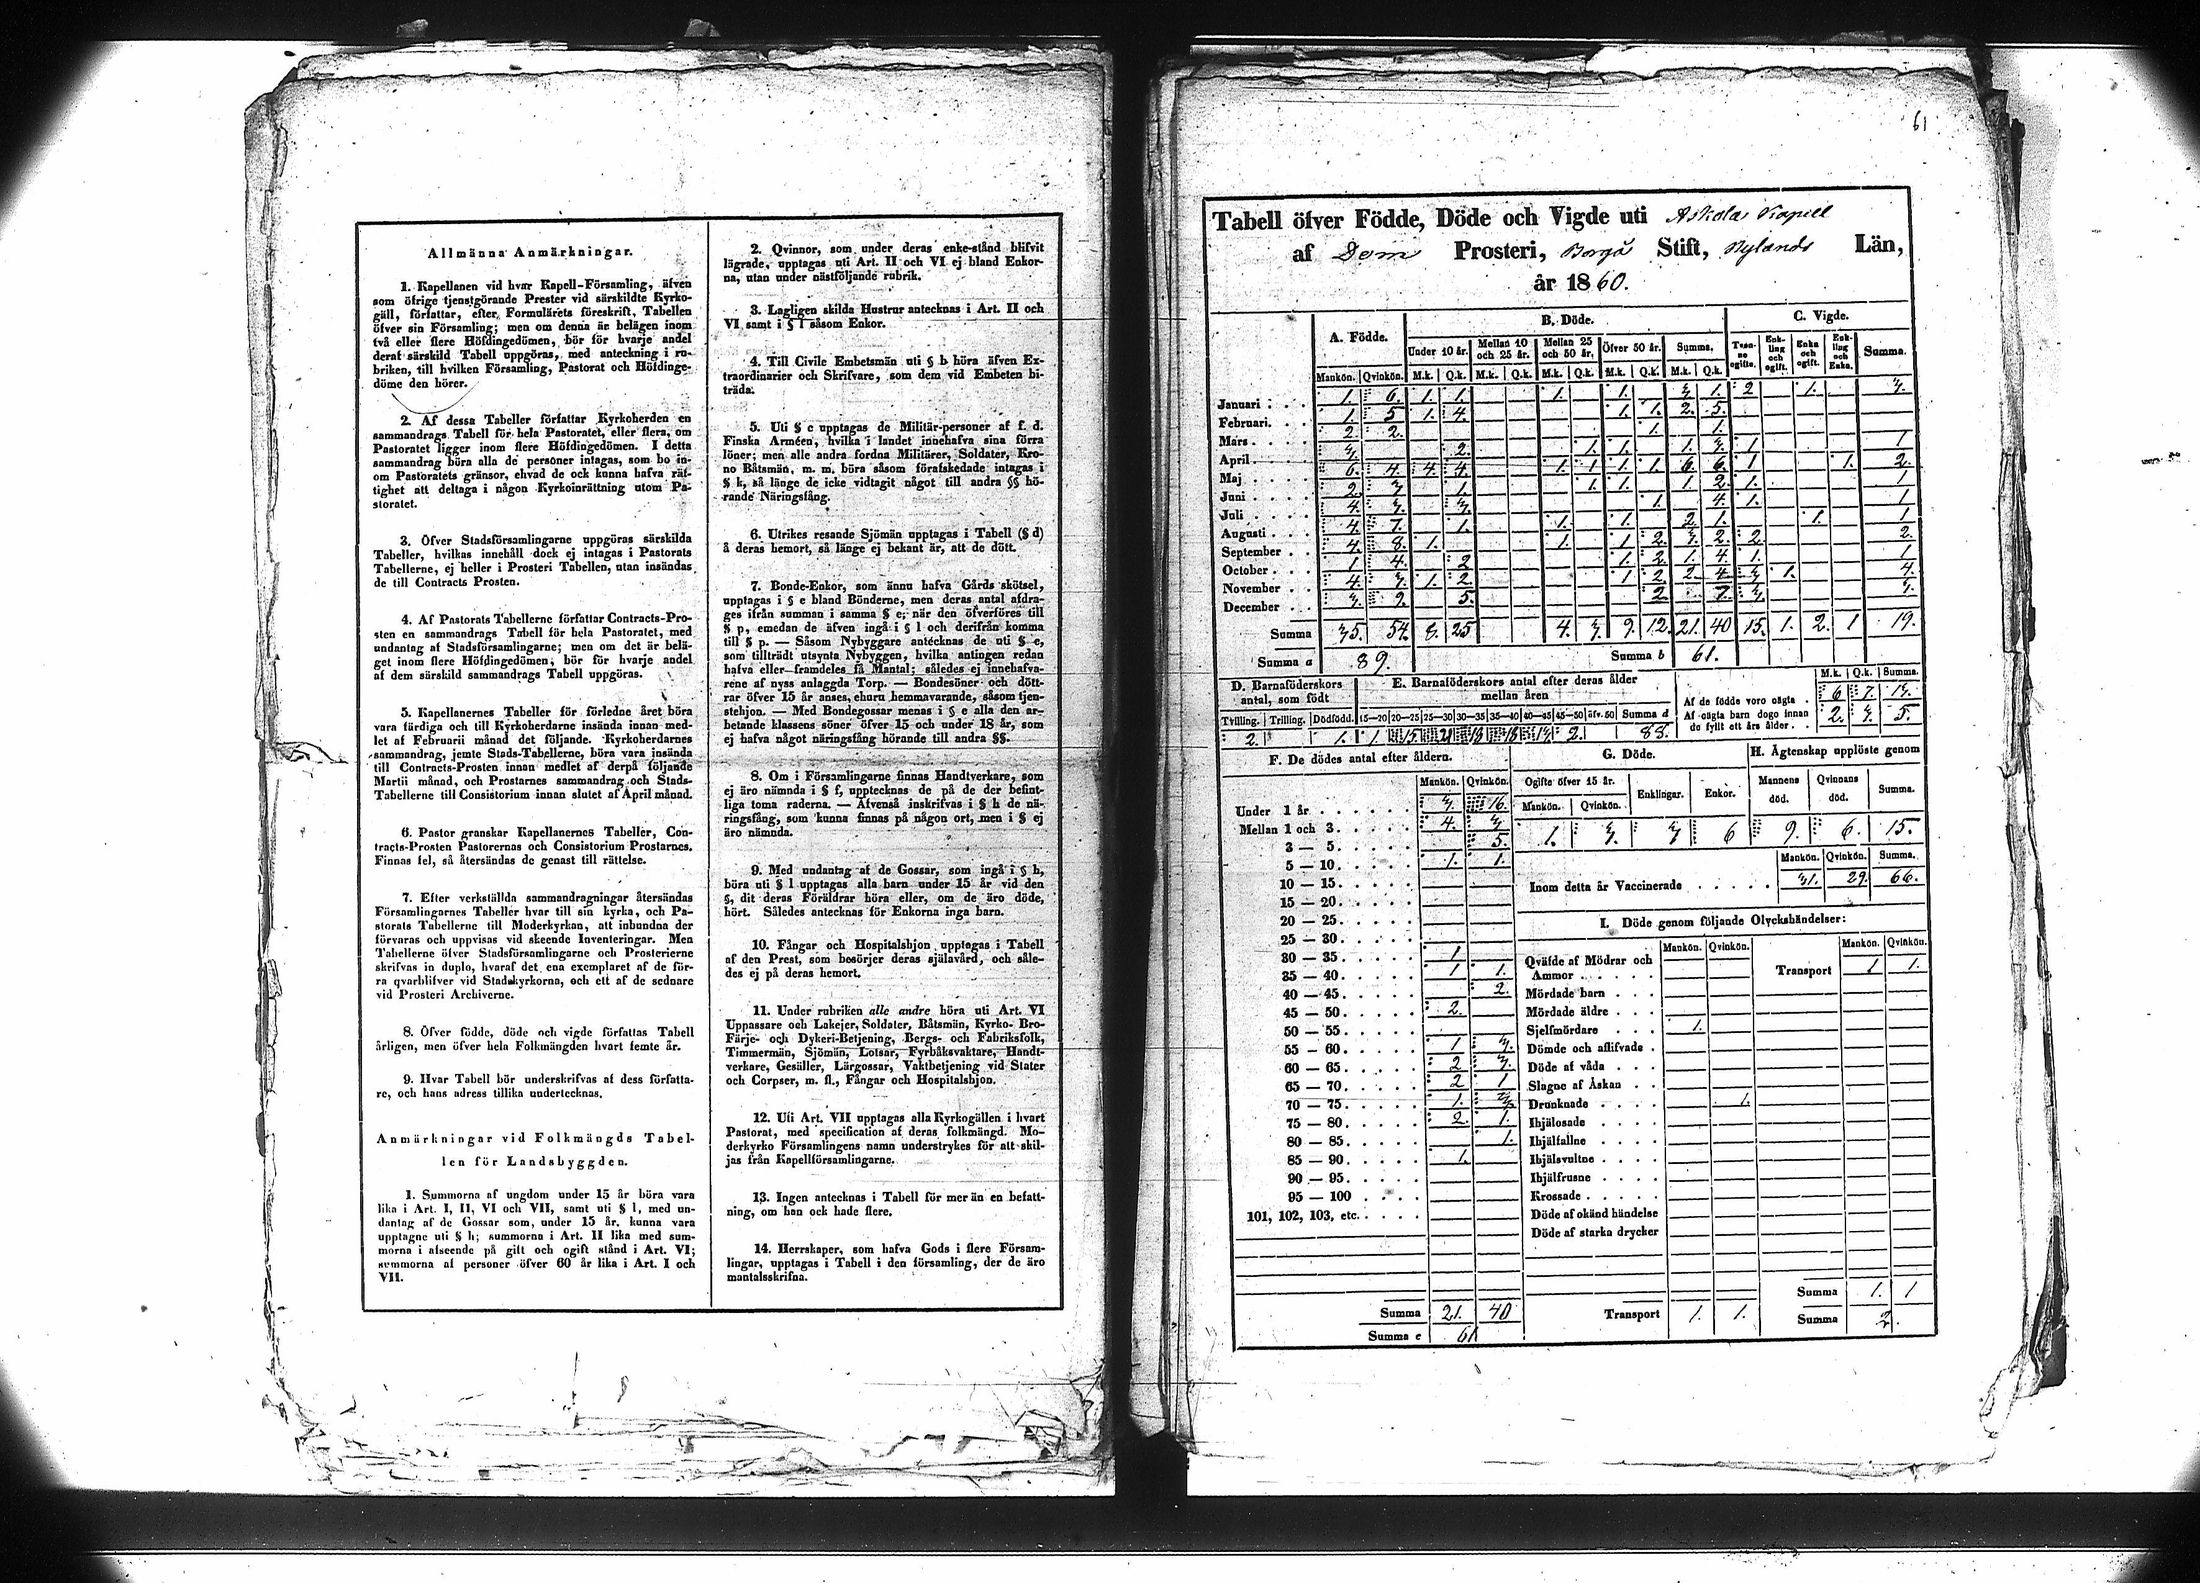 Allmänna Anmärkningar.
1. Kapellanen vid hvar Kapell-Församling, äfven
som öfrige tjenstgörande Prester vid särskildte Kyrko-
gäll, författar, efter Formulärets föreskrift, Tabellen
öfver sin Församling; men om denna är belägen inom
två eller flere Höfdingedömen, bör för hvarje andel
deraf särskild Tabell uppgöras, med anteckning i ru-
briken, till hvilken Församling, Pastorat och Höfdinge-
döme den hörer.
2. Af dessa Tabeller författar Kyrkoherden en
sammandrags Tabell för hela Pastoratet, eller flera, om
Pastoratet ligger inom flere Höfdingedömen. I detta
sammandrag böra alla de personer intagas, som bo in-
om Pastoratets gränsor, ehvad de ock kunna hafva rät-
tighet att deltaga i någon Kyrkoinrättning utom Pa-
storatet.
3. Öfver Stadsförsamlingarne uppgöras särskilda
Tabeller, hvilkas innehåll dock ej intagas i Pastorats
Tabellerne, ej heller i Prosteri Tabellen, utan insändas
de till Contracts Prosten.
4. Af Pastorats Tabellerne författar Contracts-Pro-
sten en sammandrags Tabell för hela Pastoratet, med
undantag af Stadsförsamlingarne; men om det är belä-
get inom flere Höfdingedömen, bör för hvarje andel
af dem särskild sammandrags Tabell uppgöras.
5. Kapellanernes Tabeller för förledne året böra
vara färdiga och till Kyrkoherdarne insända innan med-
let af Februarii månad det följande. Kyrkoherdarnes
sammandrag, jemte Stads-Tabellerne, böra vara insända
till Contracts-Prosten innan medlet af derpå följande
Martii månad, och Prostarnes sammandrag och Stads-
Tabellerne till Consistorium innan slutet af April månad.
6. Pastor granskar Kapellanernes Tabeller, Con-
tracts-Prosten Pastorernas och Consistorium Prostarnes.
Finnas fel, så återsändas de genast till rättelse.
7. Efter verkställda sammandragningar återsändas
Församlingarnes Tabeller hvar till sin kyrka, och Pa-
storats Tabellerne till Moderkyrkan, att inbundna der
förvaras och uppvisas vid skeende Inventeringar. Men
Tabellerne öfver Stadsförsamlingarne och Prosterierne
skrifvas in duplo, hvaraf det ena exemplaret af de för-
ra qvarblifver vid Stadskyrkorna, och ett af de sednare
vid Prosteri Archiverne.
8. Öfver födde, döde och vigde författas Tabell
årligen, men öfver hela Folkmängden hvart femte år.
9. Hvar Tabell bör underskrifvas af dess författa-
re, och hans adress tillika undertecknas.
Anmärkningar vid Folkmängds Tabel-
len för Landsbyggden.
1. Summorna af ungdom under 15 år böra vara
lika i Art. I, II, VI och VII, samt uti § l, med un-
dantag af de Gossar som, under 15 år, kunna vara
upptagne uti § h; summorna i Art. II lika med sum-
morna i afseende på gift och ogift stånd i Art. VI;
summorna af personer öfver 60 år lika i Art. I och
VII.
2. Qvinnor, som under deras enke-stånd blifvit
lägrade, upptagas uti Art. II och VI ej bland Enkor-
na, utan under nästföljande rubrik.
3. Lagligen skilda Hustrur antecknas i Art. II och
VI samt i § l såsom Enkor.
4. Till Civile Embetsmän uti § b höra äfven Ex-
traordinarier och Skrifvare, som dem vid Embeten bi-
träda.
5. Uti § c upptagas de Militär-personer af f. d.
Finska Arméen, hvilka i landet innehafva sina förra
löner; men alle andra fordna Militärer, Soldater, Kro-
no Båtsmän, m. m. böra såsom förafskedade intagas i
§ k, så länge de icke vidtagit något till andra §§ hö-
rande Näringsfång.
6. Utrikes resande Sjömän upptagas i Tabell (§ d)
å deras hemort, så länge ej bekant är, att de dött.
7. Bonde-Enkor, som ännu hafva Gårds skötsel,
upptagas i § e bland Bönderne, men deras antal afdra-
ges ifrån summan i samma § e, när den öfverföres till
§ p, emedan de äfven ingå i § l och derifrån komma
till § p. — Såsom Nybyggare antecknas de uti § e,
som tillträdt utsynta Nybyggen, hvilka antingen redan
hafva eller framdeles få Mantal; således ej innehafva-
rene af nyss anlaggda Torp. — Bondesöner och dött-
rar öfver 15 år anses, ehuru hemmavarande, såsom tjen-
stehjon. — Med Bondegossar menas i § e alla den ar-
betande klassens söner öfver 15 och under 18 år, som
ej hafva något näringsfång hörande till andra §§.
8. Om i Församlingarne finnas Handtverkare, som
ej äro nämnda i § f, upptecknas de på de der befint-
liga toma raderna. — Äfvenså inskrifvas i § h de nä-
ringsfång, som kunna finnas på någon ort, men i § ej
äro nämnda.
9. Med undantag af de Gossar, som ingå i § h,
böra uti § l upptagas alla barn under 15 år vid den
§, dit deras Föräldrar höra eller, om de äro döde,
hört. Således antecknas för Enkorna inga barn.
10. Fångar och Hospitalshjon upptagas i Tabell
af den Prest, som besörjer deras själavård, och såle-
des ej på deras hemort.
11. Under rubriken alle andre höra uti Art. VI
Uppassare och Lakejer, Soldater, Båtsmän, Kyrko- Bro-
Färje- och Dykeri-Betjening, Bergs- och Fabriksfolk,
Timmermän, Sjömän, Lotsar, Fyrbåksvaktare, Handt-
verkare, Gesäller, Lärgossar, Vaktbetjening vid Stater
och Corpser, m. fl., Fångar och Hospitalshjon.
12. Uti Art. VII upptagas alla Kyrkogällen i hvart
Pastorat, med specification af deras folkmängd. Mo-
derkyrko Församlingens namn understrykes för att skil-
jas från Kapellförsamlingarne.
13. Ingen antecknas i Tabell för mer än en befatt-
ning, om han ock hade flere.
14. Herrskaper, som hafva Gods i flere Försam-
lingar, upptagas i Tabell i den församling, der de äro
mantalsskrifna.
61
Tabell öfver Födde, Döde och Vigde uti Askola Kapell
af Dom Prosteri, Borgå Stift, Nylands Län,
år 1860.
A. Födde. B. Döde. C. Vigde.
Under 10 år. Mellan 10 och 25 år. Mellan 25 och 50 år. Öfver 50 år. Summa. Summa.
Mankön. Qvinkön. M.k. Q.k. M.k. Q.k. M.k. Q.k. M.k. Q.k. M.k. Q.k.
Januari 1. 6. 1. 1. 1. 1. 3. 1. 2 1. 3.
Februari. 1. 5 1. 4. 1. 1. 2. 5.
Mars 2. 2. 1. 1.
April 3. 2. 1. 1. 1. 3. 1 1
Maj 6. 4. 4. 4. 1. 1. 1. 1. 6. 6. 1 1. 2.
Juni 2. 3. 1. 1. 1. 1. 2. 1. 1
Juli 4. 3. 3. 1. 4 1. 1
Augusti 4. 7. 1. 1. 1. 2. 1. 1. 1
September 4. 8. 1. 1. 1 2. 3. 2. 2. 2.
October 1 4. 2 1. 2. 1. 4. 1. 1
November 4. 3. 1. 2 1 2. 2. 4. 3. 1. 4.
December 3. 9. 5. 2. 7. 3. 3.
Summa 35. 54. 8. 25 4. 3. 9. 12. 21. 40 15. 1. 2. 1 19.
Summa a 89. Summa b 61.
D. Barnaföderskors antal, som födt
Tvilling. Trilling. Dödfödd.
2. 1.
E. Barnaföderskors antal efter deras ålder mellan åren
15—20 20—25 25—30 30—35 35—40 40—45 45—50 öfv. 50 Summa d
1. 15. 21 18 2. 88.
M.k. Q.k. Summa.
Af de födde voro oägta 6 7. 13.
Af oägta barn dogo innan de fyllt ett års ålder 2. 3. 5.
F. De dödes antal efter åldern.
Mankön. Qvinkön.
Under 1 år 3. 16.
Mellan 1 och 3. 4. 3
3 — 5. 5.
5 — 10. 1. 1.
10 — 15.
15 — 20.
20 — 25.
25 — 30.
30 — 35. 1
35 — 40. 1 1.
40 — 45. 2.
45 — 50. 2.
50 — 55.
55 — 60. 1 3.
60 — 65. 2 3.
65 — 70. 2 1
70 — 75. 1.
75 — 80. 2. 1.
80 — 85. 1.
85 — 90. 1.
90 — 95.
95 — 100
101, 102, 103, etc.
Summa 21. 40
Summa c 61
G. Döde.
Ogifte öfver 15 år. Enklingar. Enkor.
Mankön. Qvinkön.
1. 3. 3 6
H. Ägtenskap upplöste genom
Mannens död. Qvinnans död. Summa.
9. 6. 15.
Mankön. Qvinkön. Summa.
Inom detta år Vaccinerade 31. 29. 66.
I. Döde genom följande Olyckshändelser:
Mankön. Qvinkön.
Qväfde af Mödrar och
Ammor
Mördade barn
Mördade äldre
Sjelfmördare 1.
Dömde och aflifvade
Döde af våda
Slagne af Åskan
Drunknade 1.
Ihjälosade
Ihjälfallne
Ihjälsvultne
Ihjälfrusne
Krossade
Döde af okänd händelse
Döde af starka drycker
Transport 1. 1.
Mankön. Qvinkön.
Transport 1 1.
Summa 1. 1
Summa 2.